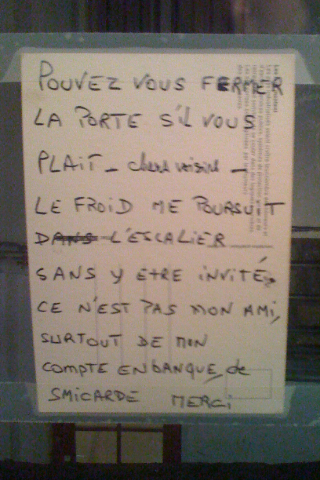 POUVEZ VOUS FERMER
LA PORTE S'IL VOUS
PLAIT _ chers voisins _
LE FROID ME POURSUIT
DANS L'ESCALIER
SANS Y ETRE INVITÉ,
CE N'EST PAS MON AMI,
SURTOUT DE MON
COMPTE EN BANQUE, de
SMICARDE MERCI